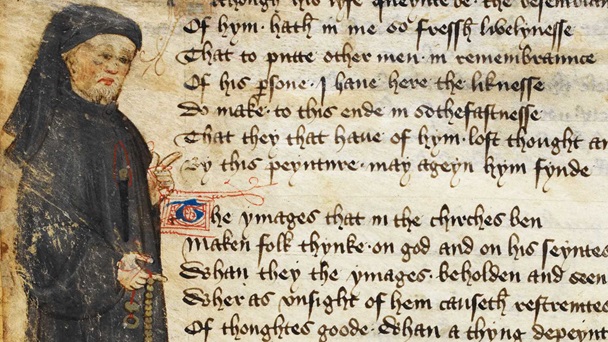 though his lyfe queynt be the resemblan
Of hym hath in me so fressh lyvelynesse
That to putte other men in remembraunce
Of his persone I have here the liknesse
Do make to this ende in sothefastnesse
That they that have of hym lost thought an
By this peynture may ageyn hym fynde
The ymages that in the chirches ben
Maken folk thynke on god and on his seyntes
Whan they the ymages beholden and seen
Wher as unsight of hem causeth restreintes
Of thoughtes goode Whan a thyng depeynt